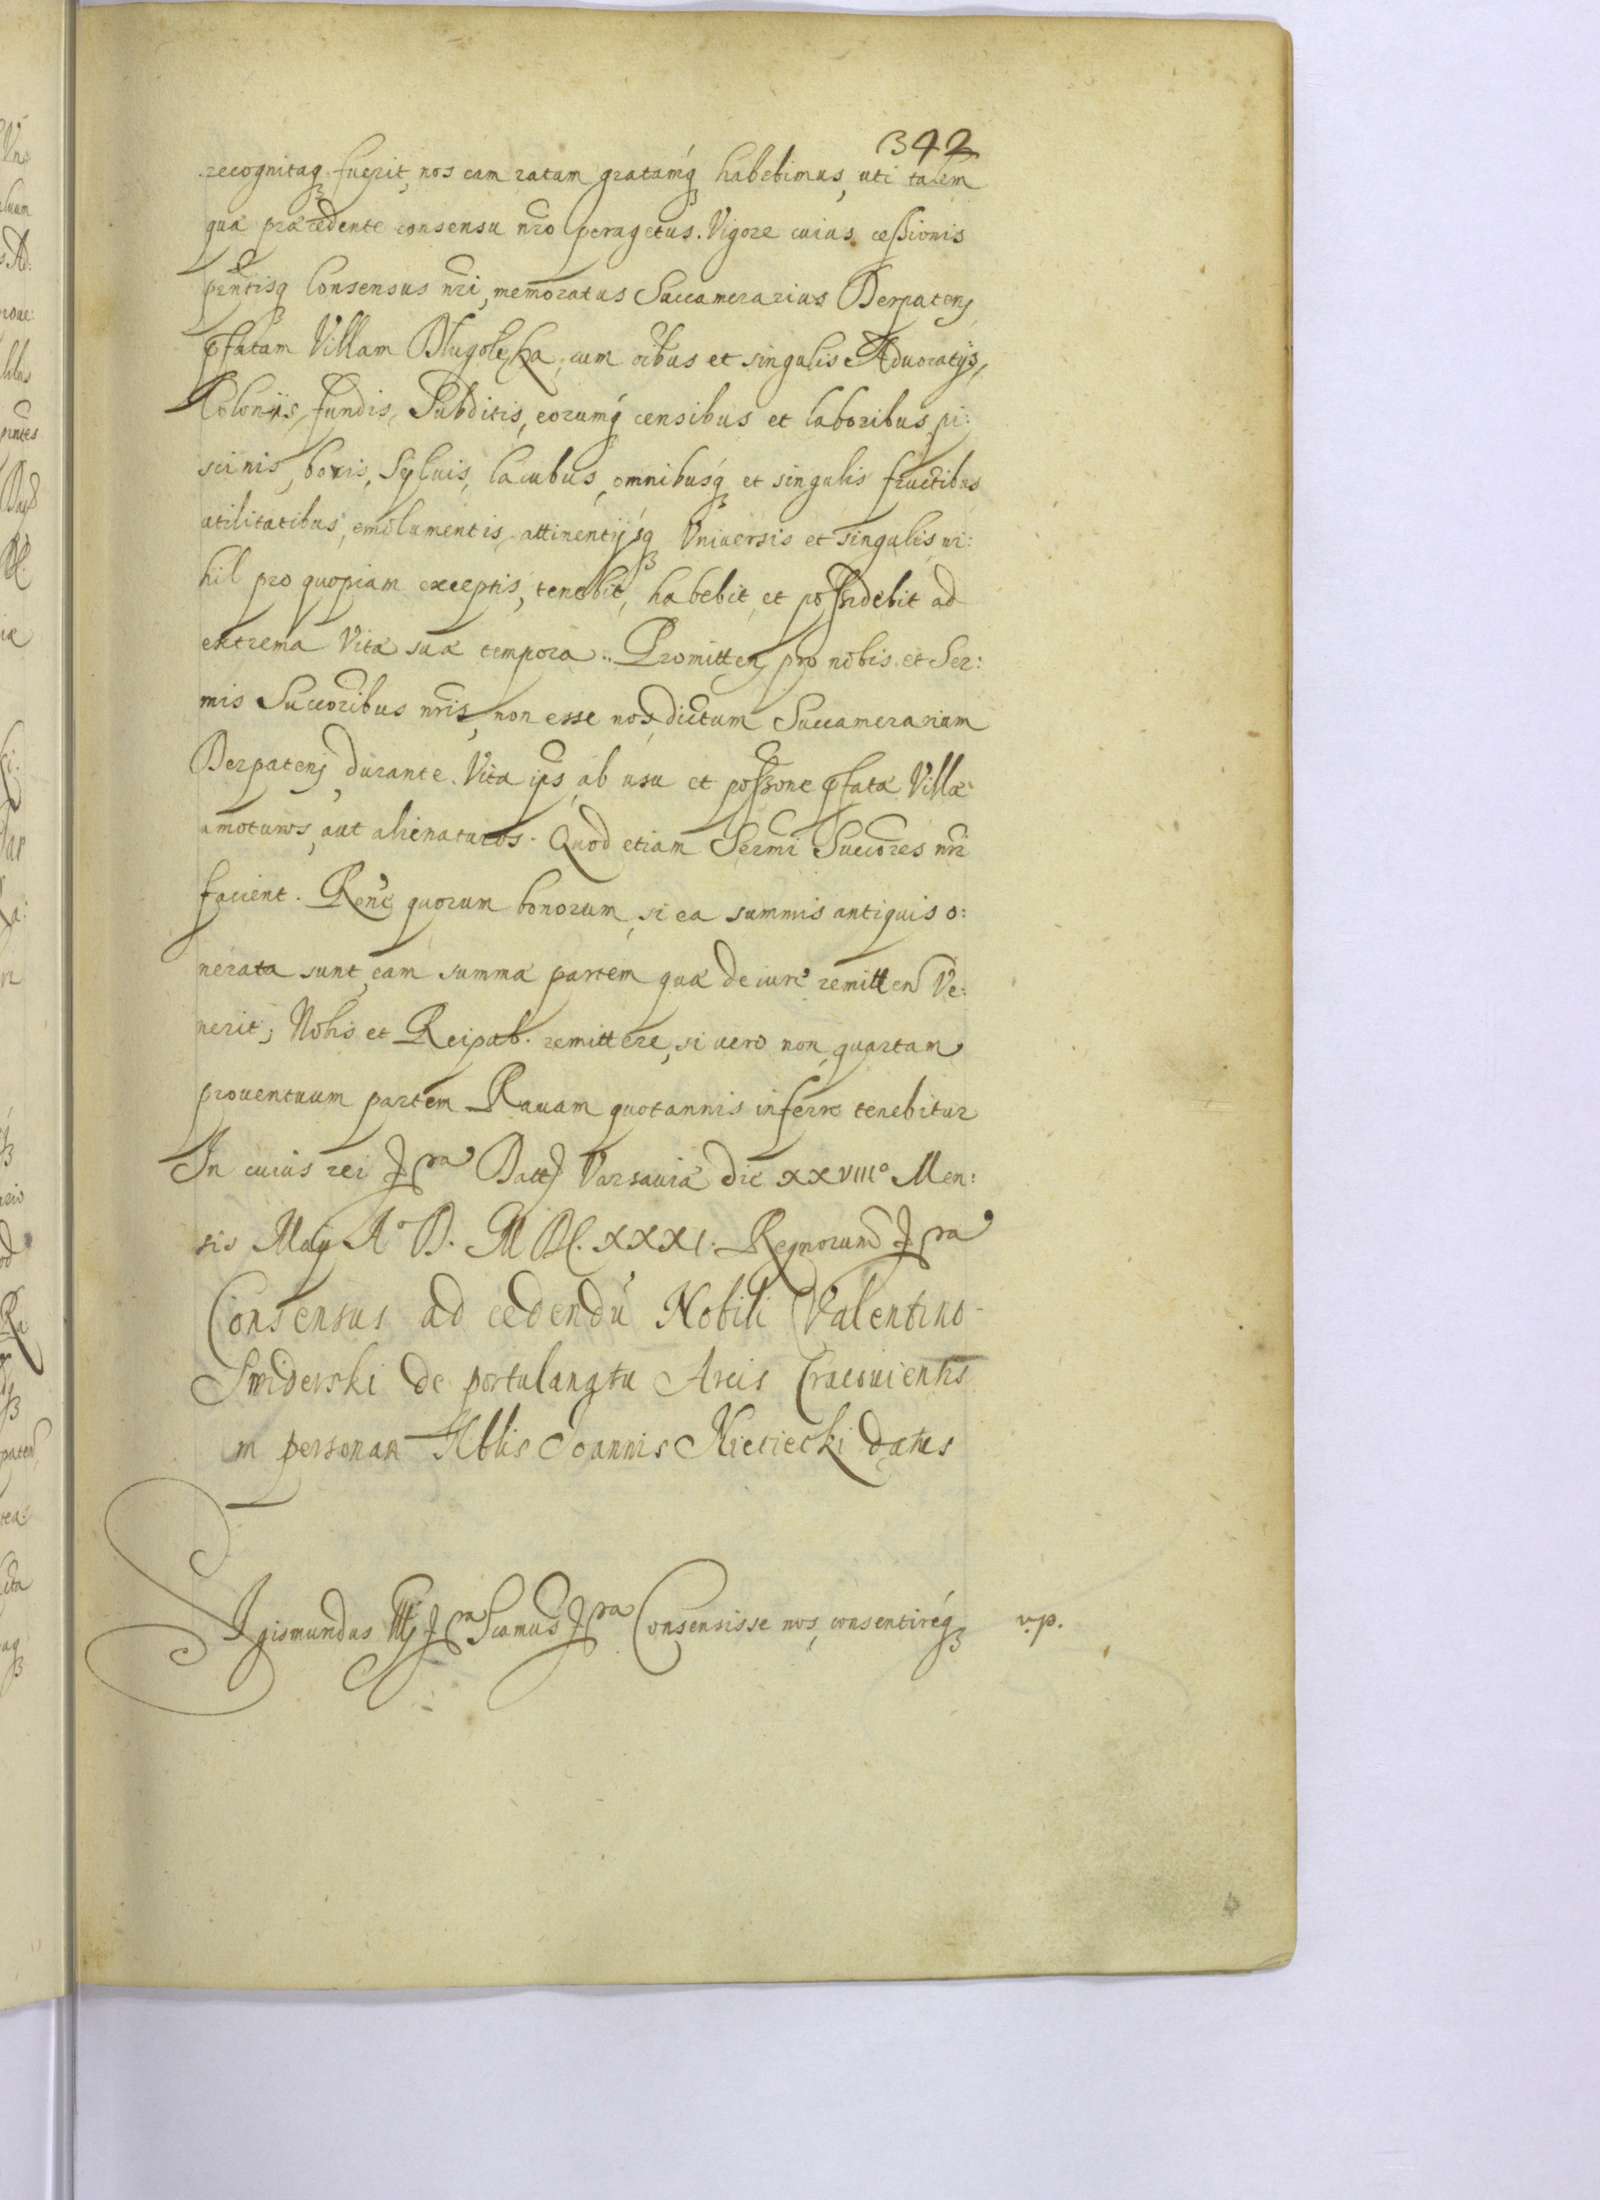 342
recognitaq₃ fuerit, nos eam ratam gratamq₃ habebimus, uti talem
quæ præcedente consensu nr̃o peragetur. Vigore cuius cessionis
pr̃ntisq₃ Consensus nr̃i, memoratus Succamerarius Derpaten̄
pfatam Villam Długołęka, cum oĩbus et singulis Aduocatijs,
Colonijs, fundis, Subditis, eorumq₃ censibus et laboribus, pi:
scinis, boris, Syluis, lacubus, omnibusq₃ et singulis fructibus
utilitatibus, emolumentis, attinentijsq₃ Vniuersis et singulis, ni:
hil pro quopiam exceptis, tenebit, habebit et possidebit ad
extrema Vitæ suæ tempora. Promitten̄ pro nobis et Ser:
mis Succoribus nr̃is, non esse nos dictum Succamerarium
Derpaten̄, durante Vita ip̃s, ab usu et possone pfatæ Villæ
amoturos, aut alienaturos. Quod etiam Sermi Succores nr̃i
facient. Rõne quorum bonorum, si ea summis antiquis o:
nerata sunt, eam summæ partem quæ de iure remitten Ve:
nerit, Nobis et Reipub. remittere, si uero non, quartam
prouentuum partem Rauam quotannis inferre tenebitur
In cuius rei &ra Datt Varsauiæ die XXVIII° Men:
sis Maij A° D. M DC. XXXI. Regnorum &ra
Consensus ad cedendũ Nobili Valentino
Swiderski de portulangtu Arcis Cracouiensis
in personam Nblis Joannis Nieciecki datus
Sigismundus III &ra Scamus &ra Consensisse nos, consentireq₃ v.p.